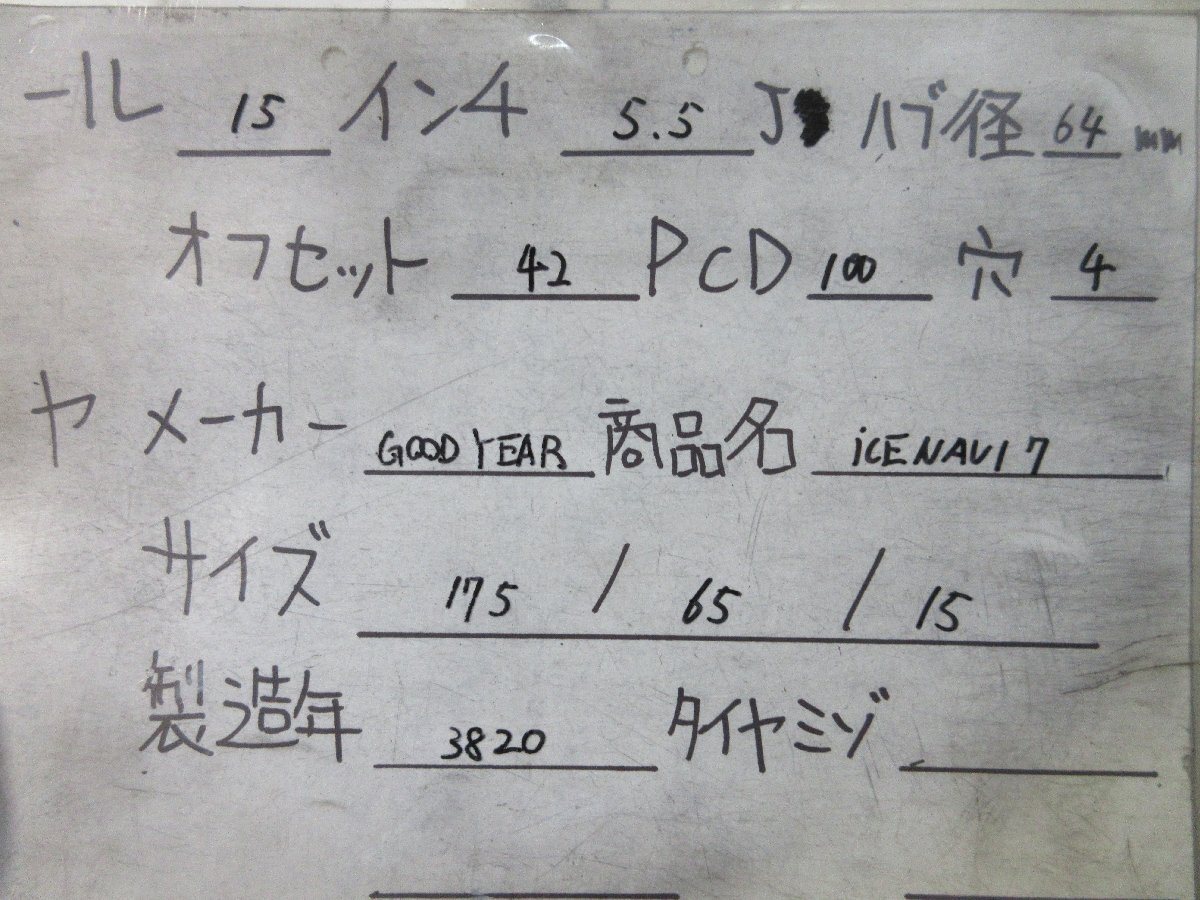 ール 15 インチ 5.5 J ハブ径 64 mm
オフセット 42 PCD 100 穴 4
ヤ メーカー GOODYEAR 商品名 iCE NAVI 7
サイズ 175 / 65 / 15
製造年 3820 タイヤミゾ